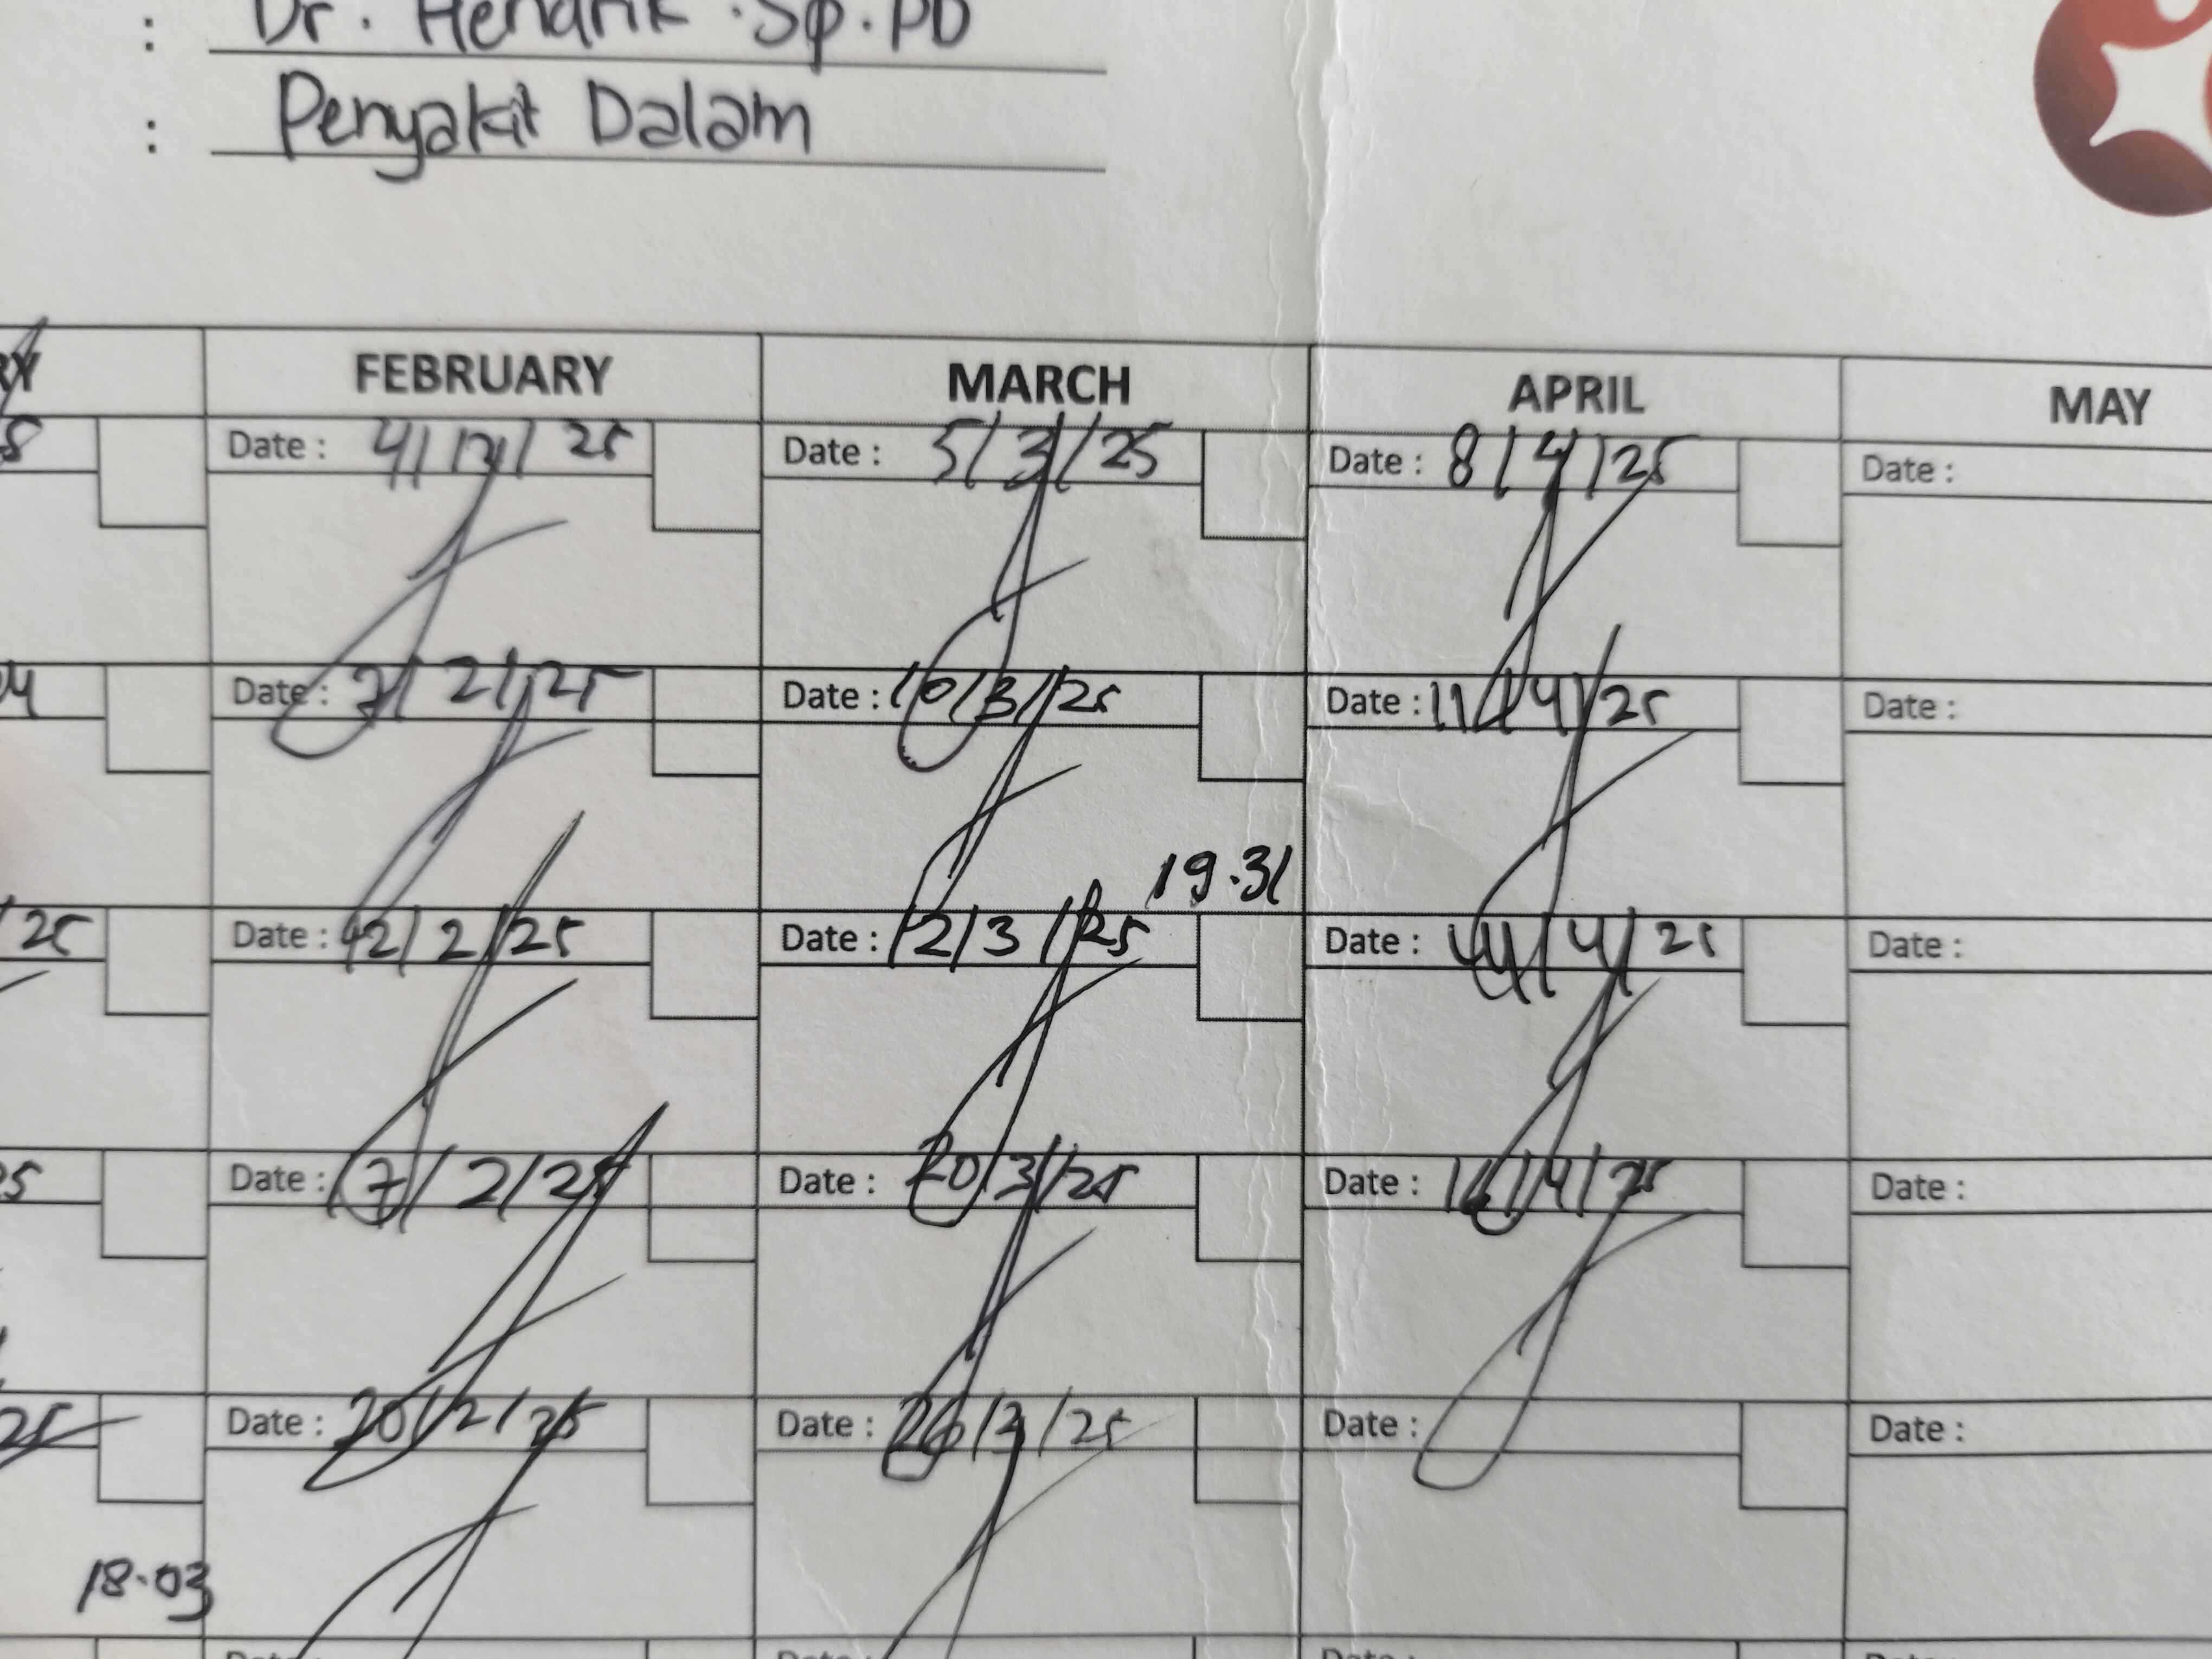 : Dr. Hendrik . Sp. PD
: Penyakit Dalam
RY FEBRUARY MARCH APRIL MAY
Date : 4/2/25 Date : 5/3/25 Date : 8/4/25 Date :
Date : 7/2/25 Date : 10/3/25 Date : 11/4/25 Date :
19.31
25 Date : 12/2/25 Date : 12/3/25 Date : 14/4/25 Date :
25 Date : 17/2/25 Date : 20/3/25 Date : 16/4/25 Date :
25 Date : 20/2/25 Date : 26/3/25 Date : Date :
18.03
Date : Date : Date :